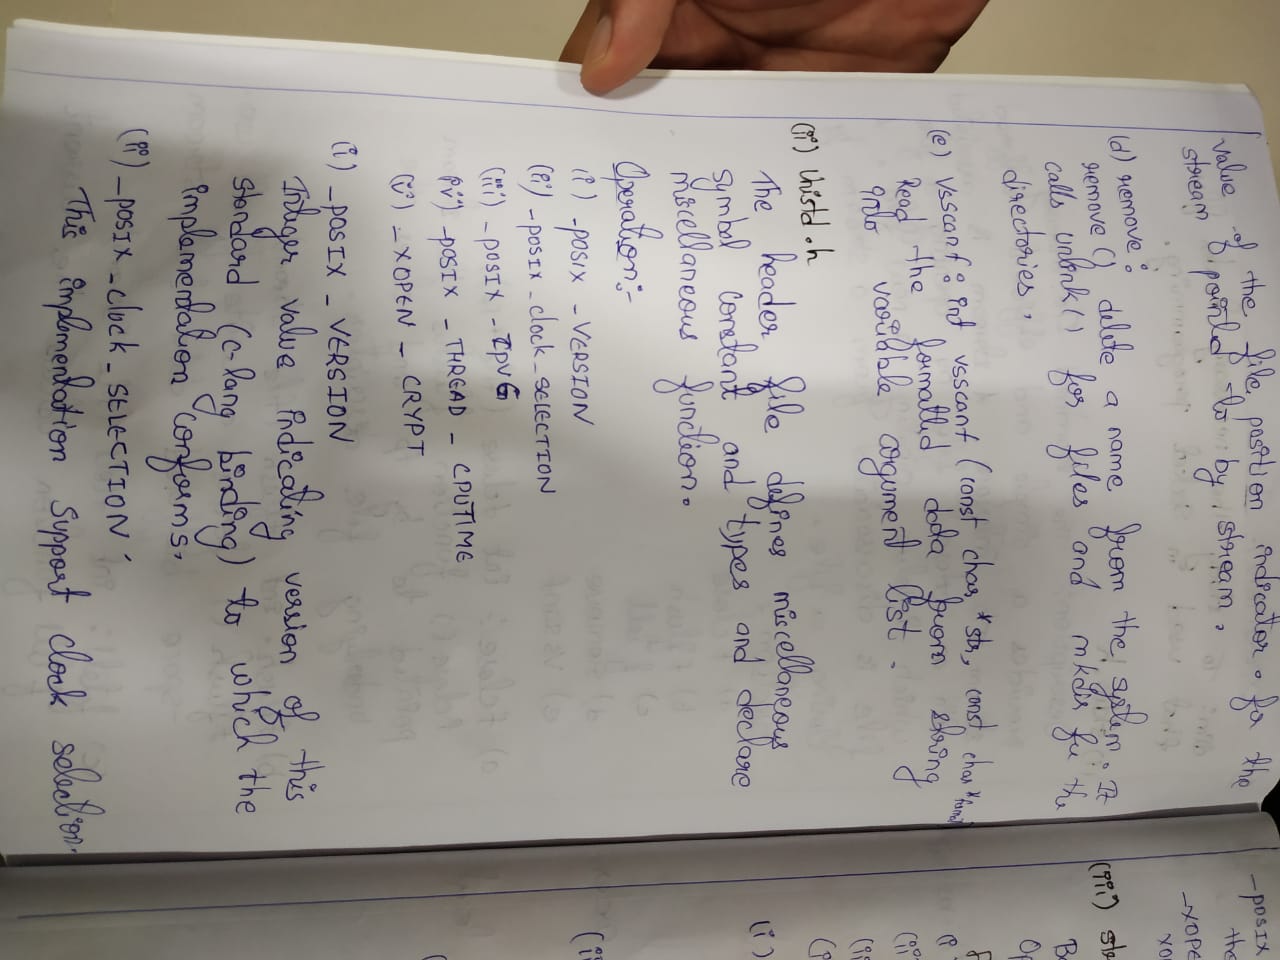 value of the file position indicator. for the
stream pointed to by stream.
(d) remove :
remove () delete a name from the system. It
calls unlink() for files and mkdir for the
directories.
(e) Vsscanf : int vsscanf (const char *str, const char *format
Read the formatted data from string
into variable argument list.
(ii) Unistd.h
The header file defines miscellaneous
symbol constant and types and declare
miscellaneous function.
Operation:-
(i) -POSIX - VERSION
(ii) - POSIX - clock - SELECTION
(iii) - POSIX - IPV6
iv) - POSIX - THREAD - CPUTIME
(v) - XOPEN - CRYPT
(i) - POSIX - VERSION
Integer value indicating version of this
standard (c-lang binding) to which the
implementation conforms.
(ii) - POSIX - clock - SELECTION
This implementation support clock selection.
- POSIX
the
- XOPE
XO
(iii)
B
Op
(i
(ii
(i)
(ii